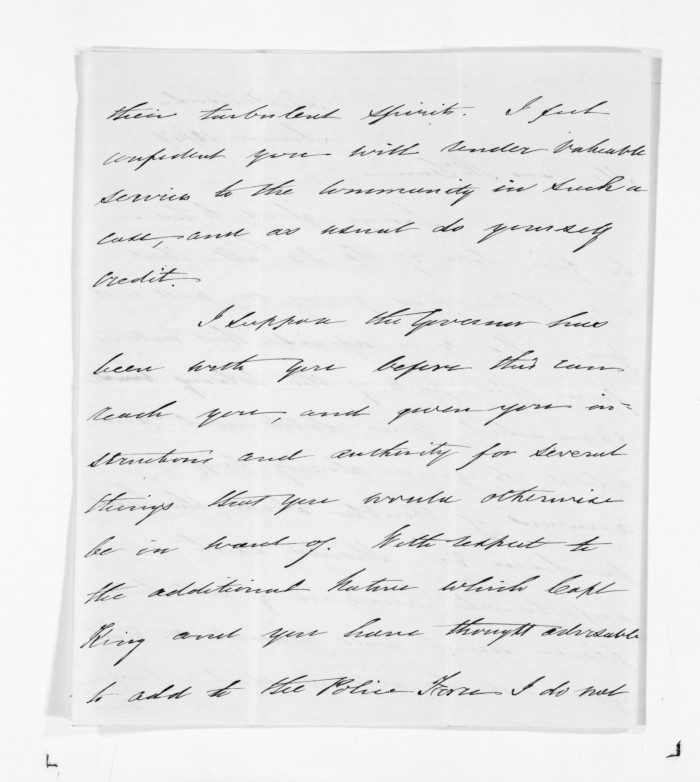 their turbulent spirits. I feel
confident you will render valuable
service to the community in such a
case, and as usual do yourself
credit.
I suppose the Governor has
been with you before this can
reach you, and given you in=
structions and authority for several
things that you would otherwise
be in want of. With respect to
the additional Natives which Capt
King and you have thought advisable
to add to the Police Force I do not